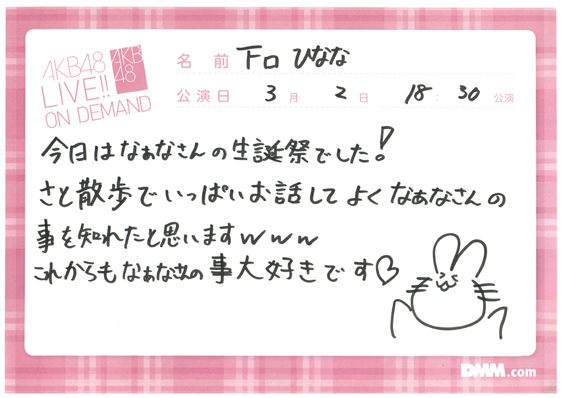 AKB48
LIVE!!
ON DEMAND
AKB
48
名前 下口ひなな
公演日 3月 2日 18:30 公演
今日はなぁなさんの生誕祭でした!
さと散歩でいっぱいお話してよくなぁなさんの
事を知れたと思いますwww
これからもなぁなさんの事大好きです♡
DMM.com